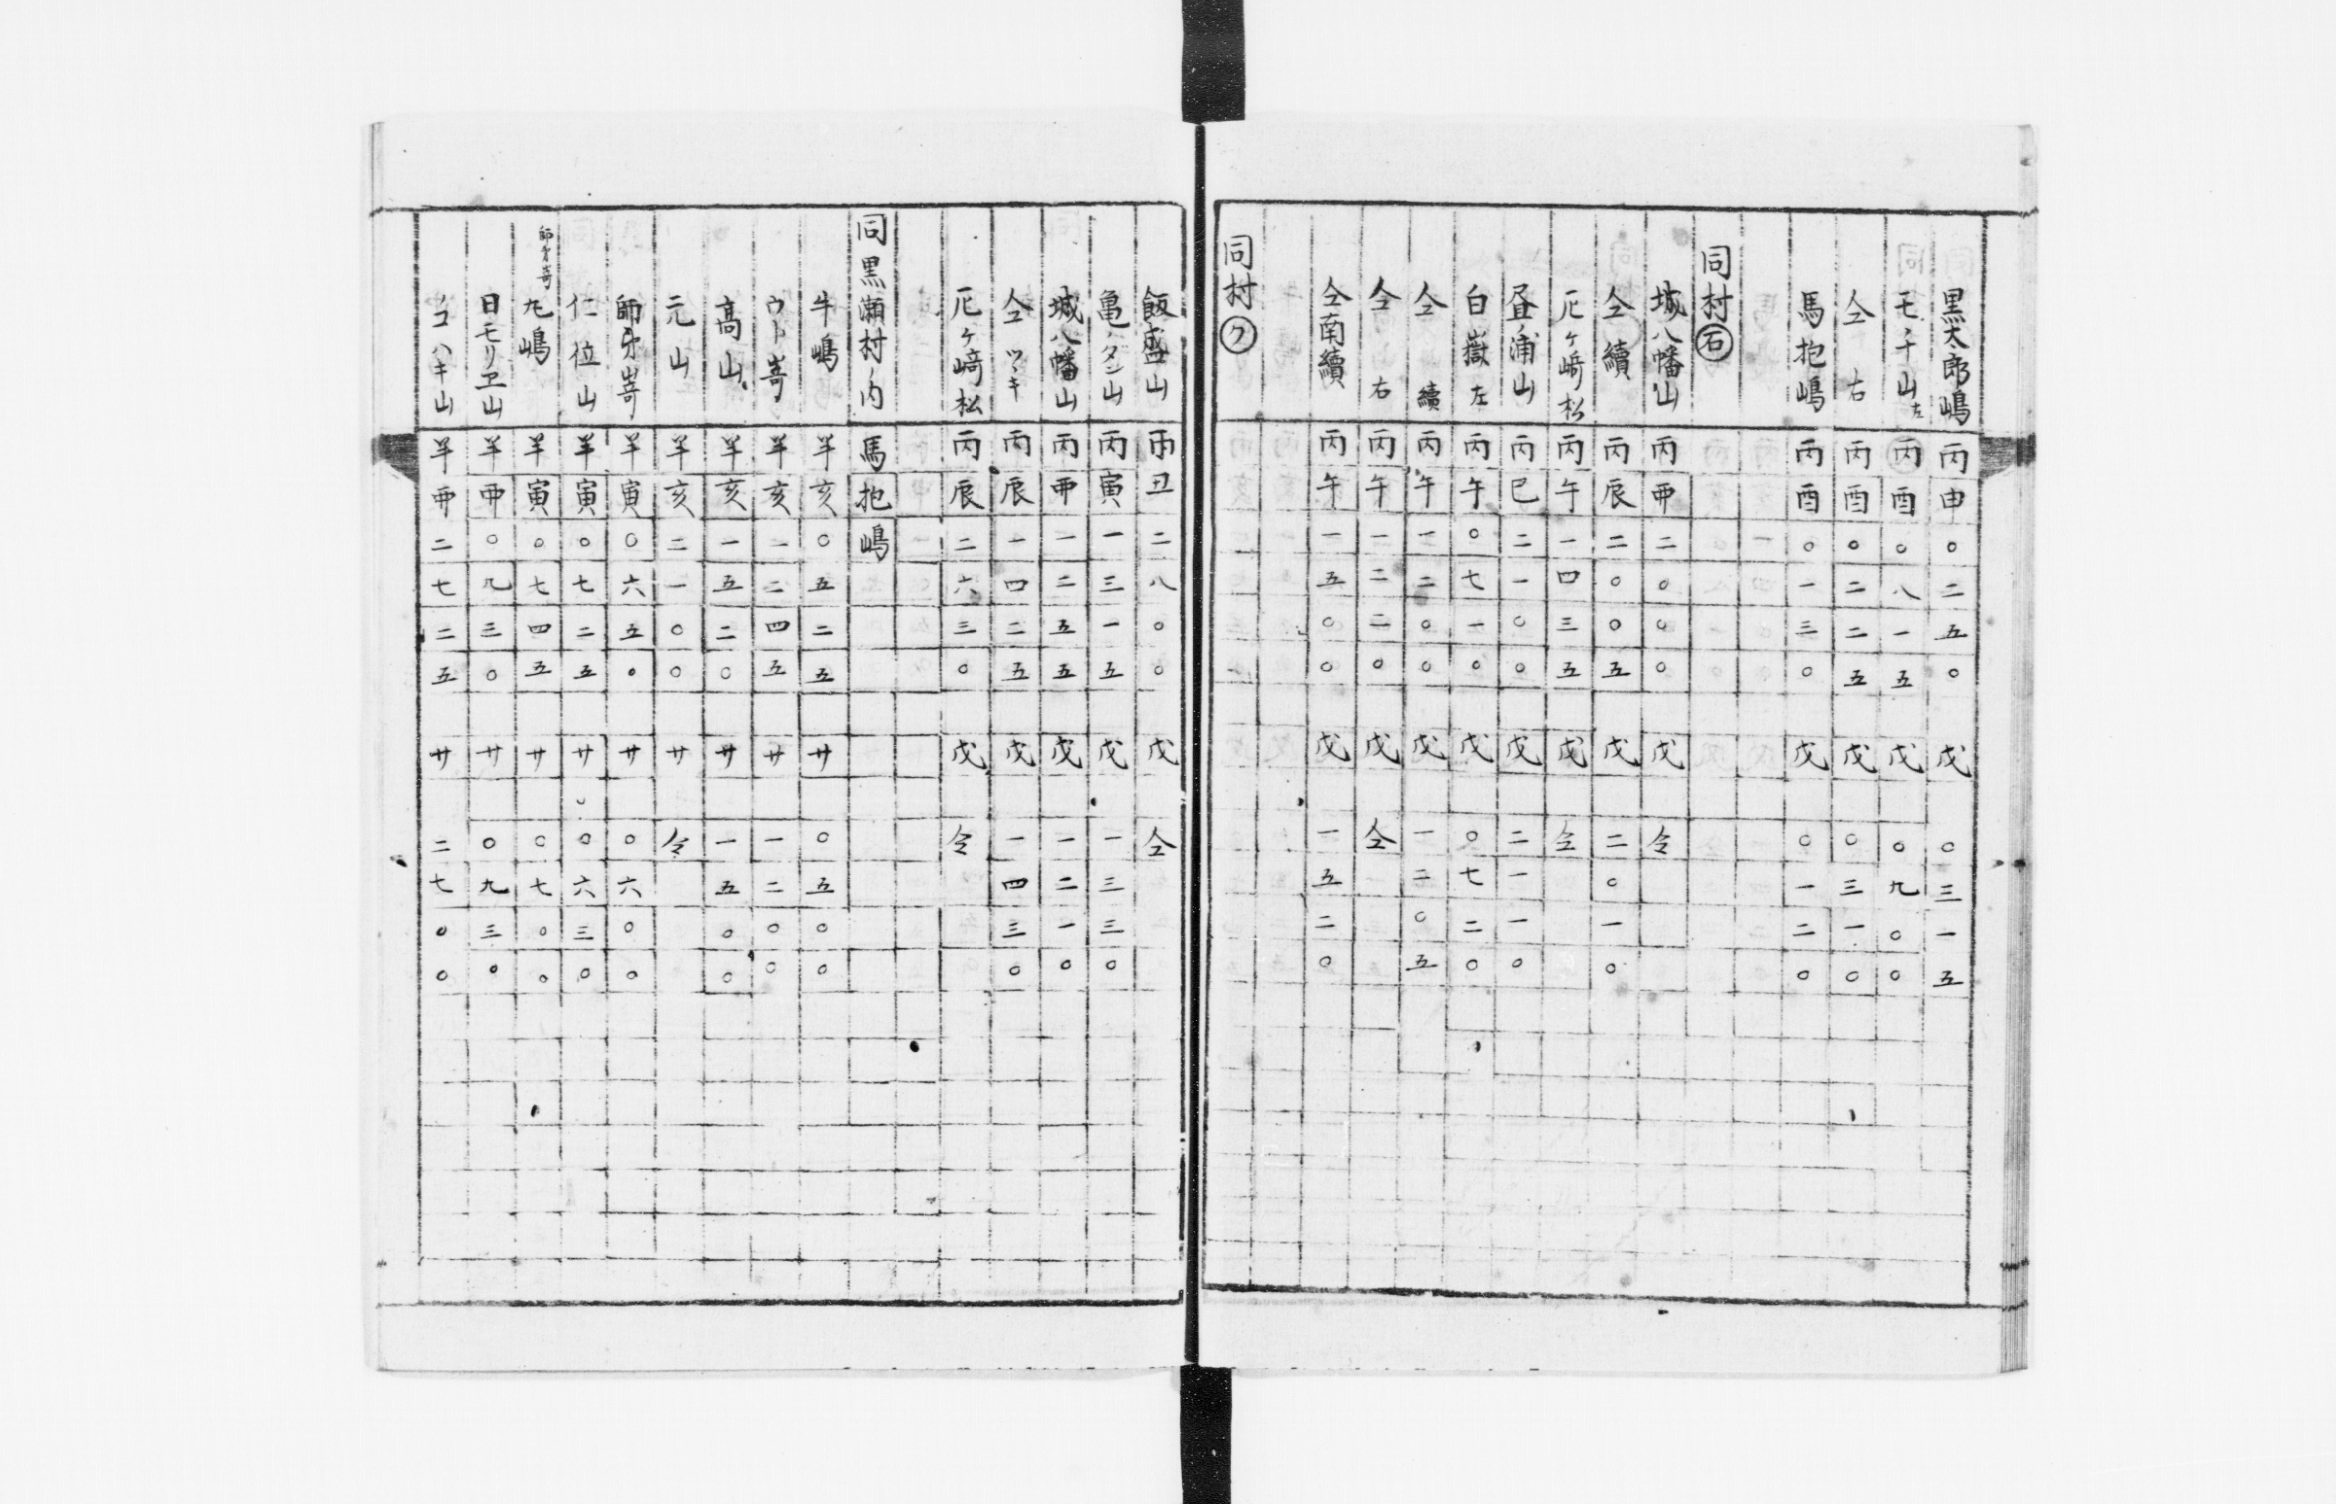 黒太郎嶋 丙申〇二五〇 戊〇三一五
モチ山左 丙酉〇八一五 戊〇九〇〇
仝右 丙酉〇二二五 戊〇三一〇
馬抱嶋 丙酉〇一三〇 戊〇一二〇
同村㊨
城八幡山 丙二〇〇〇 戊仝
仝續 丙辰二〇〇五 戊二〇一〇
ヶ﨑松 丙午一四三五 戊仝
昼浦山 丙巳二一〇〇 戊二一一〇
白嶽左 丙午〇七一〇 戊〇七二〇
仝續 丙午一二〇〇 戊一二〇五
仝右 丙午一二二〇 戊仝
仝南續 丙午一五〇〇 戊一五二〇
同村㋗
飯盛山 丙丑二八〇〇 戊仝
亀ノタン山 丙寅一三一五 戊一三三〇
城八幡山 丙一二五五 戊一二一〇
仝ツヽキ 丙辰一四二五 戊一四三〇
ヶ﨑松 丙辰二六三〇 戊仝
同黒瀬村ノ内 馬抱嶋
牛嶋 羊亥〇五二五 廿〇五〇〇
ウト嵜 羊亥一二四五 廿一二〇〇
高山 羊亥一五二〇 廿一五〇〇
元山 羊亥二一〇〇 廿仝
師牙嵜 羊寅〇六五〇 廿〇六〇〇
仁位山 羊寅〇七二五 廿〇六三〇
師牙嵜
嶋 羊寅〇七四五 廿〇七〇〇
日モリヱ山 羊〇九三〇 廿〇九三〇
ハキ山 羊二七二五 廿二七〇〇